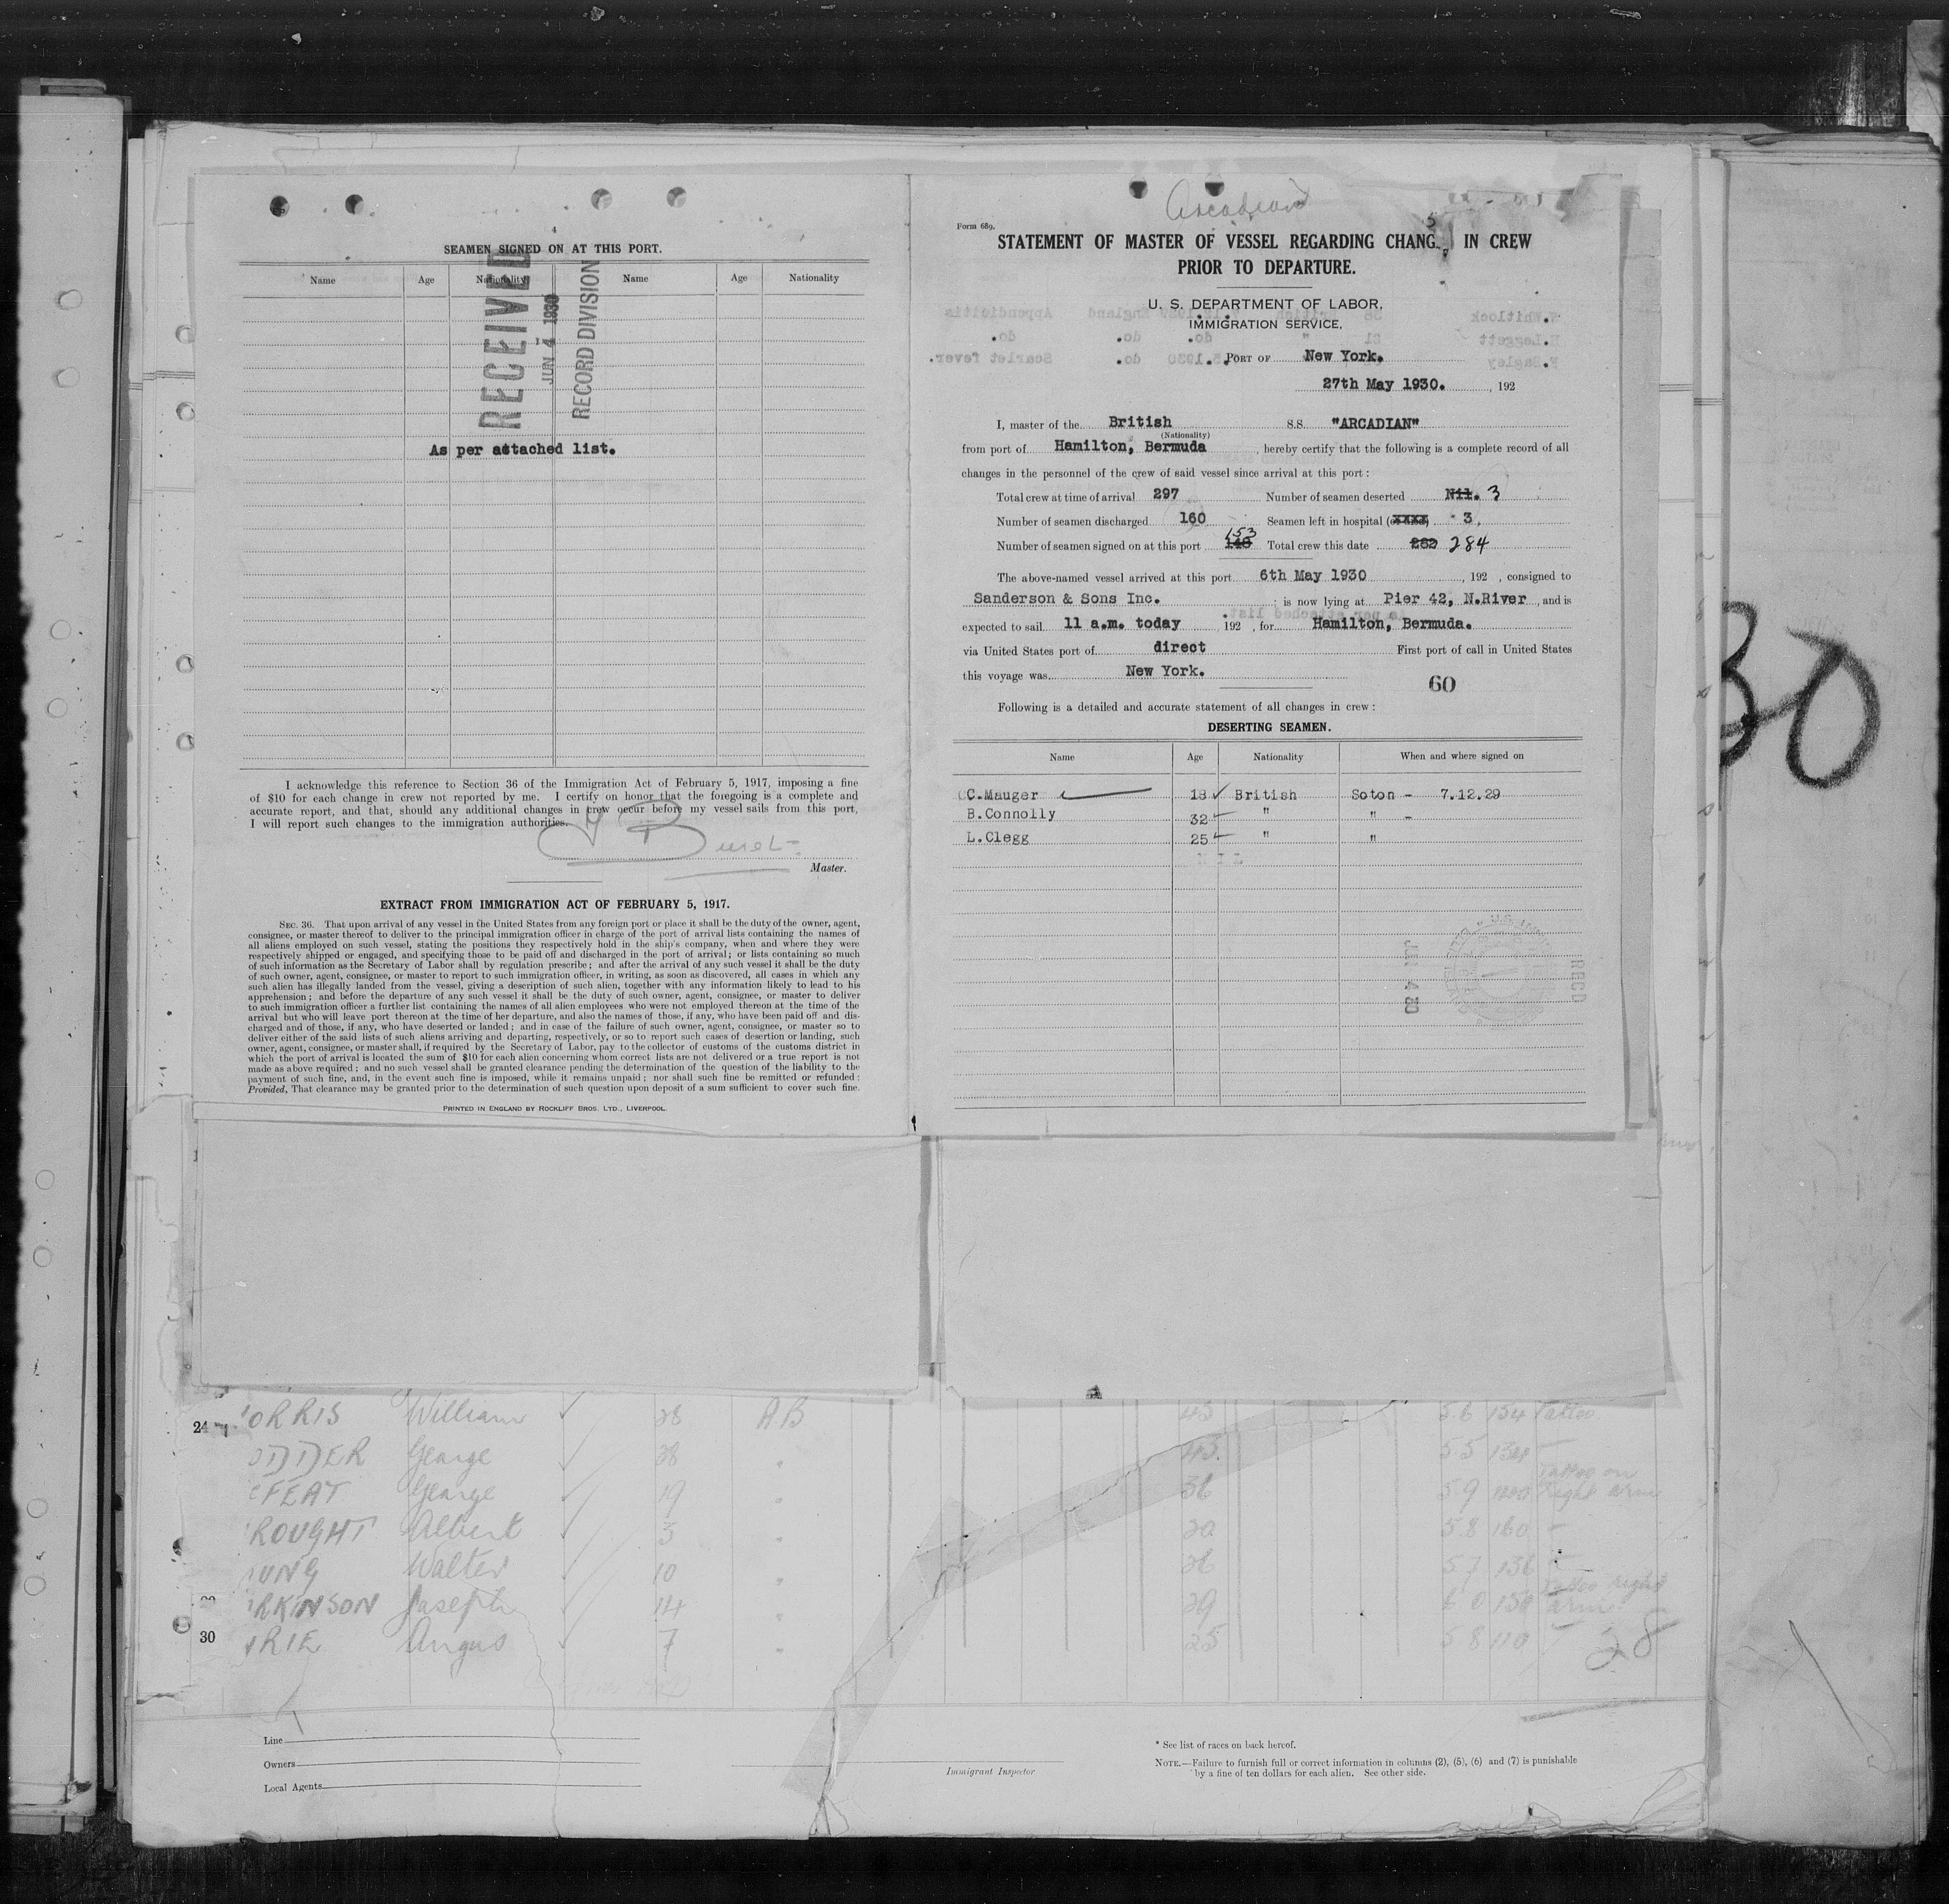 4
SEAMEN SIGNED ON AT THIS PORT.
Name Age Nationality Name Age Nationality
RECEIVED
JUN 4 1930
RECORD DIVISION
As per attached list.
I acknowledge this reference to Section 36 of the Immigration Act of February 5, 1917, imposing a fine
of $10 for each change in crew not reported by me. I certify on honor that the foregoing is a complete and
accurate report, and that, should any additional changes in crew occur before my vessel sails from this port,
I will report such changes to the immigration authorities.
Master.
EXTRACT FROM IMMIGRATION ACT OF FEBRUARY 5, 1917.
SEC. 36. That upon arrival of any vessel in the United States from any foreign port or place it shall be the duty of the owner, agent,
consignee, or master thereof to deliver to the principal immigration officer in charge of the port of arrival lists containing the names of
all aliens employed on such vessel, stating the positions they respectively hold in the ship's company, when and where they were
respectively shipped or engaged, and specifying those to be paid off and discharged in the port of arrival; or lists containing so much
of such information as the Secretary of Labor shall by regulation prescribe; and after the arrival of any such vessel it shall be the duty
of such owner, agent, consignee, or master to report to such immigration officer, in writing, as soon as discovered, all cases in which any
such alien has illegally landed from the vessel, giving a description of such alien, together with any information likely to lead to his
apprehension; and before the departure of any such vessel it shall be the duty of such owner, agent, consignee, or master to deliver
to such immigration officer a further list containing the names of all alien employees who were not employed thereon at the time of the
arrival but who will leave port thereon at the time of her departure, and also the names of those, if any, who have been paid off and dis-
charged and of those, if any, who have deserted or landed; and in case of the failure of such owner, agent, consignee, or master so to
deliver either of the said lists of such aliens arriving and departing, respectively, or so to report such cases of desertion or landing, such
owner, agent, consignee, or master shall, if required by the Secretary of Labor, pay to the collector of customs of the customs district in
which the port of arrival is located the sum of $10 for each alien concerning whom correct lists are not delivered or a true report is not
made as above required; and no such vessel shall be granted clearance pending the determination of the question of the liability to the
payment of such fine, and, in the event such fine is imposed, while it remains unpaid; nor shall such fine be remitted or refunded:
Provided, That clearance may be granted prior to the determination of such question upon deposit of a sum sufficient to cover such fine.
PRINTED IN ENGLAND BY ROCKLIFF BROS. LTD., LIVERPOOL.
Arcadian
Form 689.
STATEMENT OF MASTER OF VESSEL REGARDING CHANG IN CREW
PRIOR TO DEPARTURE.
U. S. DEPARTMENT OF LABOR,
IMMIGRATION SERVICE,
PORT OF New York.
27th May 1930. , 192
I, master of the British S.S. "ARCADIAN"
(Nationality)
from port of Hamilton, Bermuda , hereby certify that the following is a complete record of all
changes in the personnel of the crew of said vessel since arrival at this port:
Total crew at time of arrival 297 Number of seamen deserted Nil. 3
Number of seamen discharged 160 Seamen left in hospital 3,
Number of seamen signed on at this port 153 Total crew this date 282 284
The above-named vessel arrived at this port 6th May 1930 , 192 , consigned to
Sanderson & Sons Inc. ; is now lying at Pier 42, N.River , and is
expected to sail 11 a.m. today 192 , for Hamilton, Bermuda.
via United States port of direct First port of call in United States
this voyage was New York.
60
Following is a detailed and accurate statement of all changes in crew:
DESERTING SEAMEN.
Name Age Nationality When and where signed on
C.Mauger 18 British Soton - 7.12.29
B.Connolly 32 " " -
L.Clegg 25 " "
NIL
JUN 4 30
RECD
30
24 ORRIS William 28 AB 43 5.6 154 Tattoo
DDER George 28 " 43. 5 5
FEAT George 19 " 36 5 9 Tattoo on right arm
ROUGHT Albert 3 " 20 5.8 160 -
UNG Walter 10 " 26 5 7 136 -
RKINSON Joseph 14 " 29 6 0 150 Tattoo right arm
30 RIE Angus 7 " 25 5 8 110 -
28
Line
Owners
Local Agents
Immigrant Inspector
* See list of races on back hereof.
NOTE.—Failure to furnish full or correct information in columns (2), (5), (6) and (7) is punishable
by a fine of ten dollars for each alien. See other side.